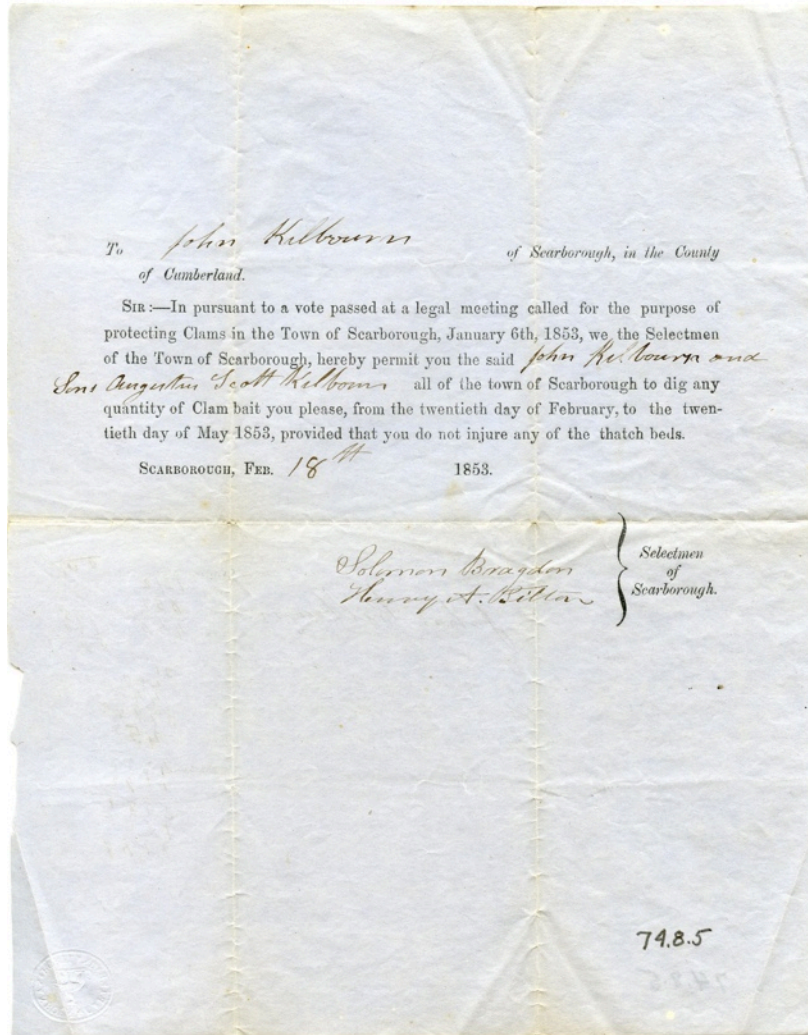 To John Kelbourn of Scarborough, in the County
of Cumberland.
SIR :—In pursuant to a vote passed at a legal meeting called for the purpose of
protecting Clams in the Town of Scarborough, January 6th, 1853, we the Selectmen
of the Town of Scarborough, hereby permit you the said John Kelbourn and
Sons Augustus Scott Kelbourn all of the town of Scarborough to dig any
quantity of Clam bait you please, from the twentieth day of February, to the twen-
tieth day of May 1853, provided that you do not injure any of the thatch beds.
SCARBOROUGH, FEB. 18th 1853.
Solomon Bragdon
Henry A.
} Selectmen
of
Scarborough.
74.8.5